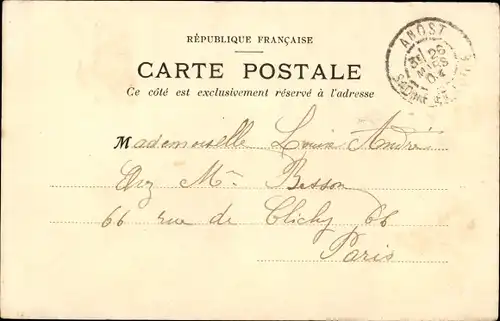 RÉPUBLIQUE FRANÇAISE
CARTE POSTALE
Ce côté est exclusivement réservé à l'adresse
ANOST
3E 26
MARS
04
SAÔNE ET LOIRE
Mademoiselle Louise André
Chez Mr Besson
66 rue de Clichy 66
Paris